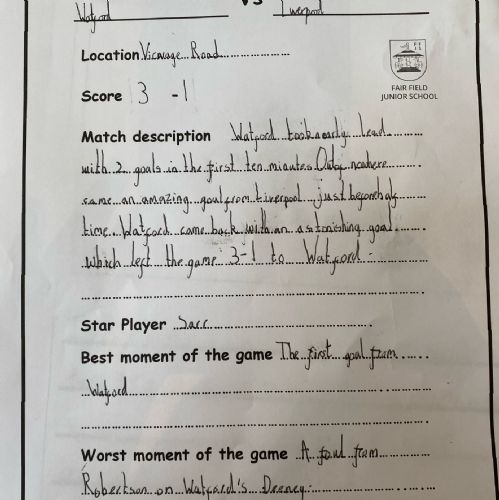 vs
Watford Liverpool
Location Vicarage Road
Score 3 - 1
FAIR FIELD
JUNIOR SCHOOL
Match description Watford took early lead
with 2 goals in the first ten minutes Out of nowhere
came an amazing goal from Liverpool just before half
time. Watford came back with an astonishing goal
which left the game 3-1 to Watford.
Star Player Sarr
Best moment of the game The first goal from
Watford
Worst moment of the game A foul from
Robertson on Watford's Deeney.